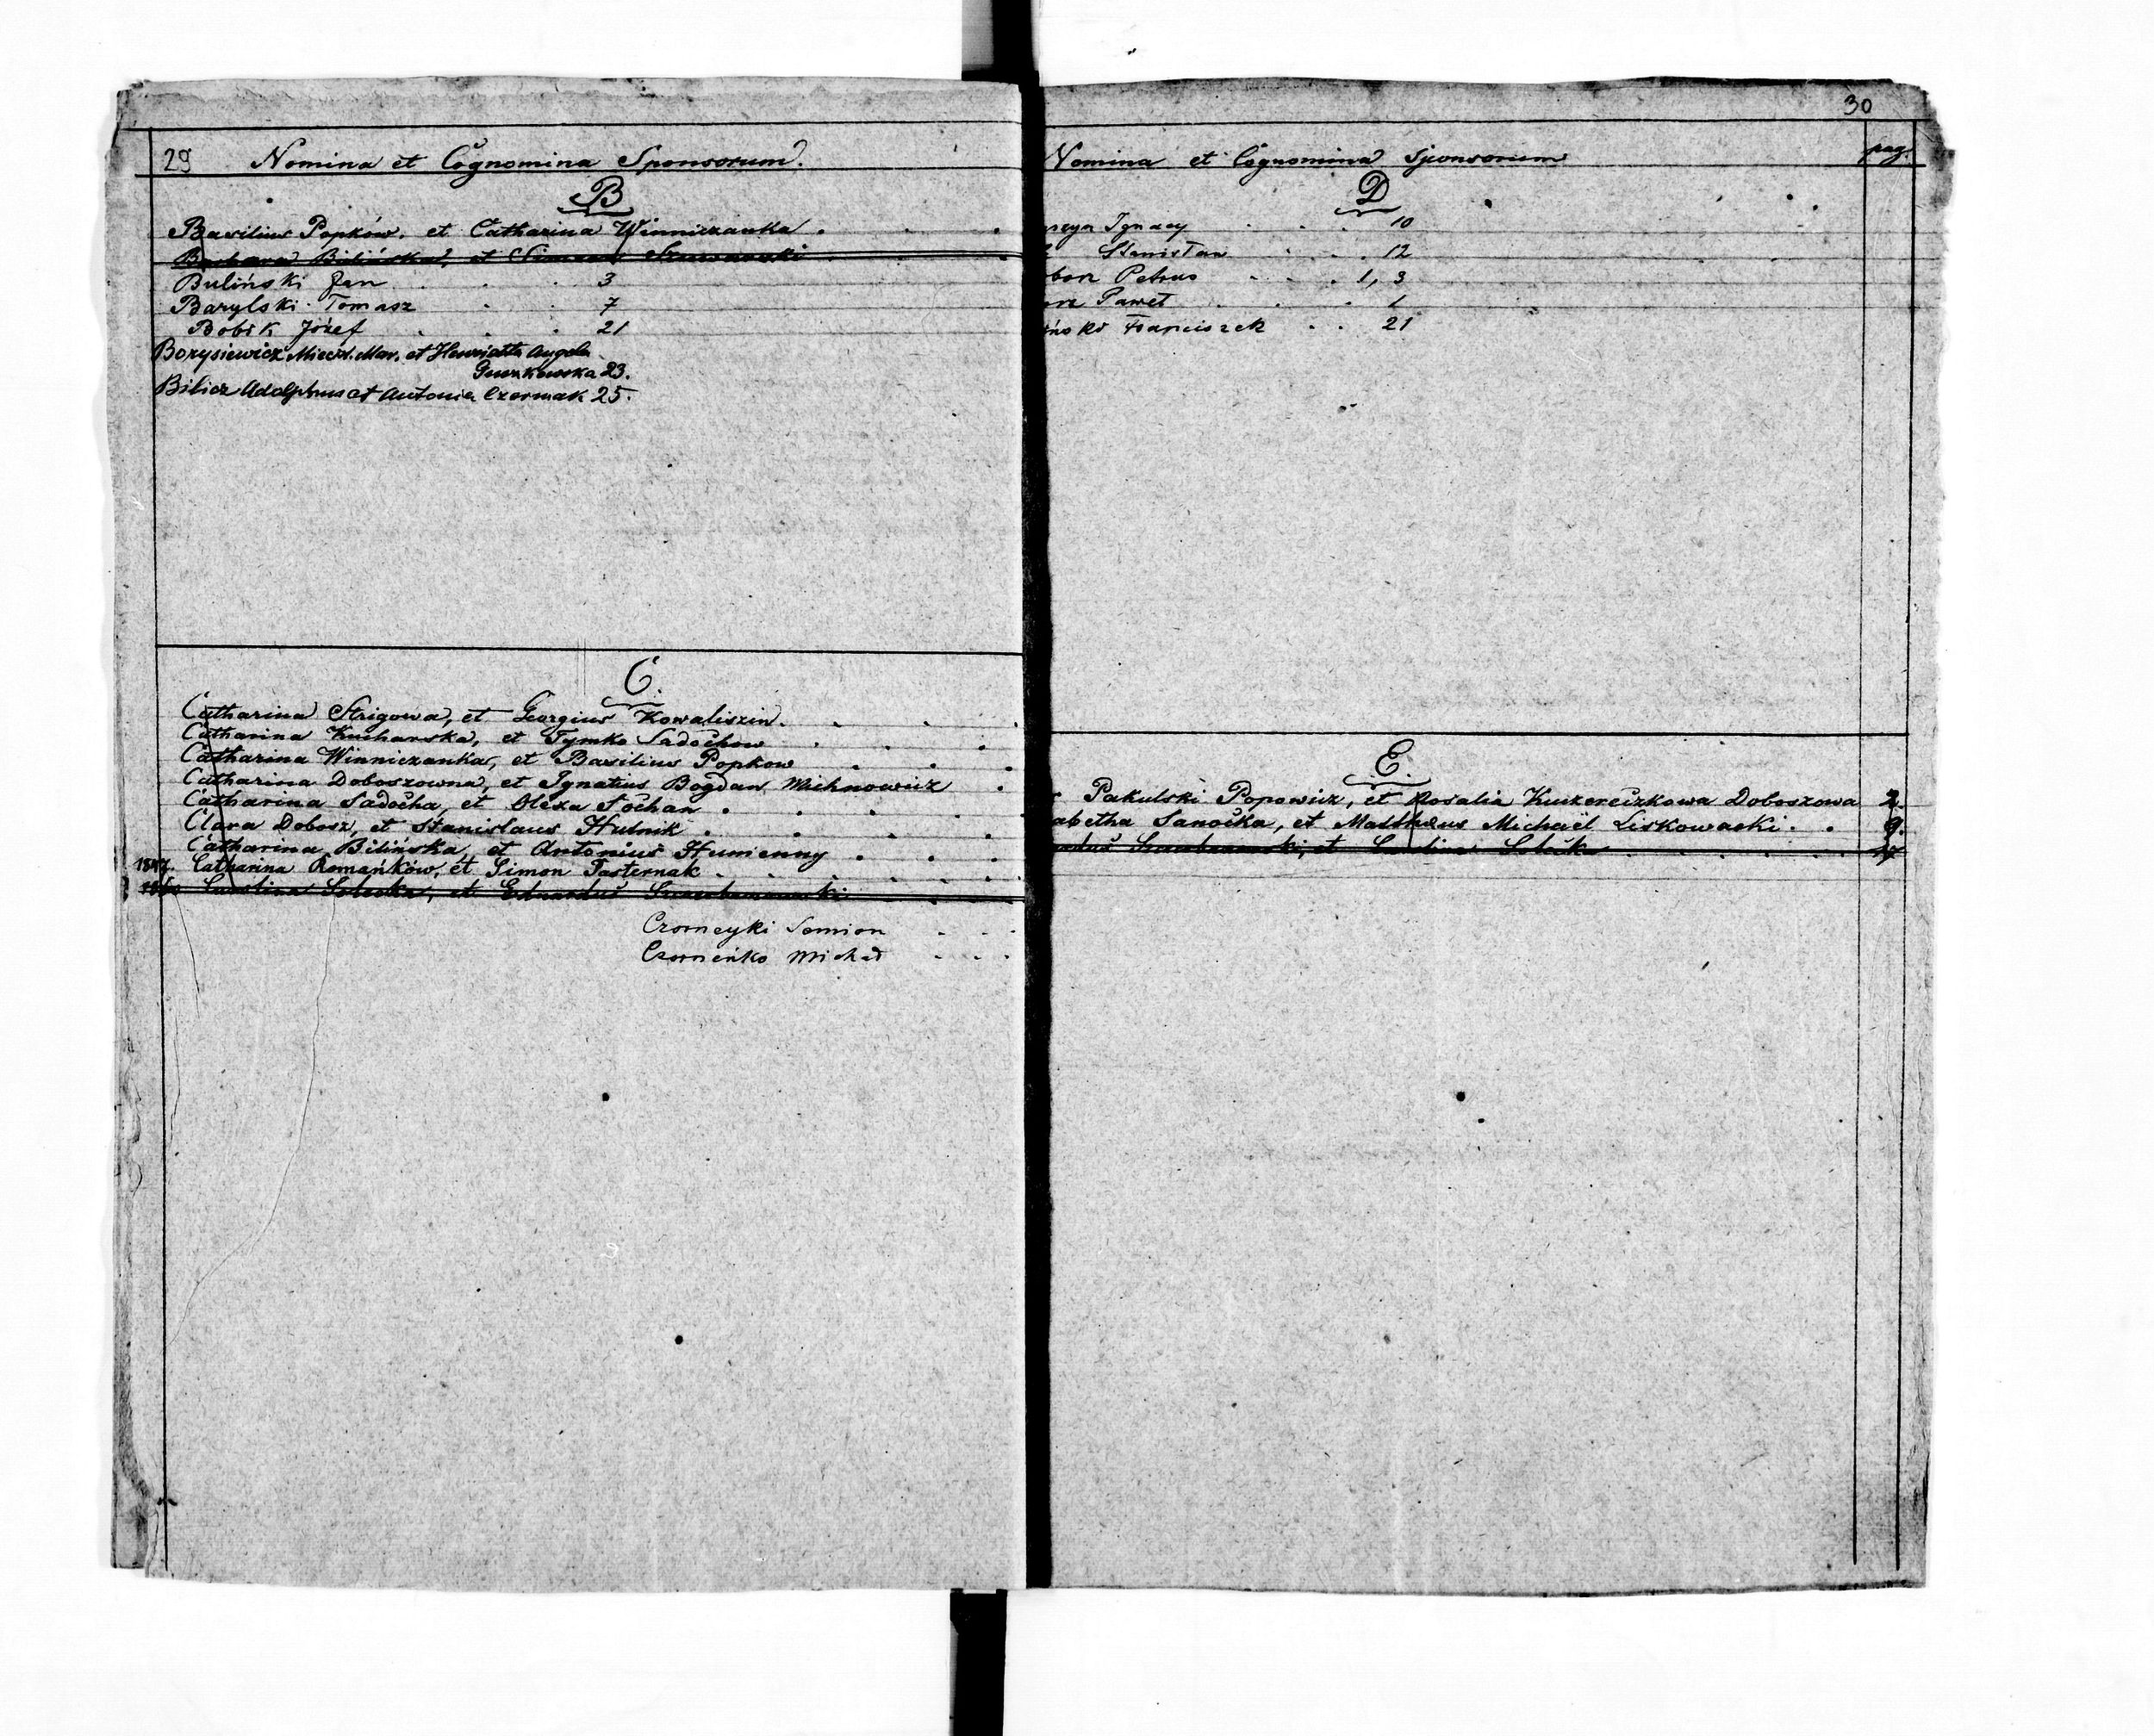 29 Nomina et Cognomina Sponsorum.
B
Basilius Popków, et Catharina Winniczanka
Barbara Bilińska, et Simeon
Buliński Jan 3
Barylski Tomasz 7
Bobik Józef 21
Borysiewicz Miecz. Mar. et Henrietta Angela
23.
Bilicz Adolphus et Antonia Czermak 25.
C.
Catharina Strigowa, et Georgius Kowaliszin.
Catharina Kucharska, et Tymko Sadochow
Catharina Winniczanka, et Basilius Popkow
Catharina Doboszowna, et Ignatius Bogdan Michnowicz
Catharina Sadocha, et Olexa Sochan
Clara Dobosz, et Stanislaus Hutnik
Catharina Bilińska, et Antonius Humenny
Catharina Romańków, et Simon Pasternak
Carolina Solecka, et Eduardus
Czorneyki Semion
Czorneńko Michał
30
Nomina et Cognomina Sponsorum pag.
D
Ignacy 10
Stanisław 12
Petrus 1, 3
Paweł 1
Franciszek 21
E.
Pakulski Popowicz, et Rosalia Doboszowa 2.
abetha Sanocka, et Matthæus Michaël Liskowacki. 9.
et Carolina Solecka 17